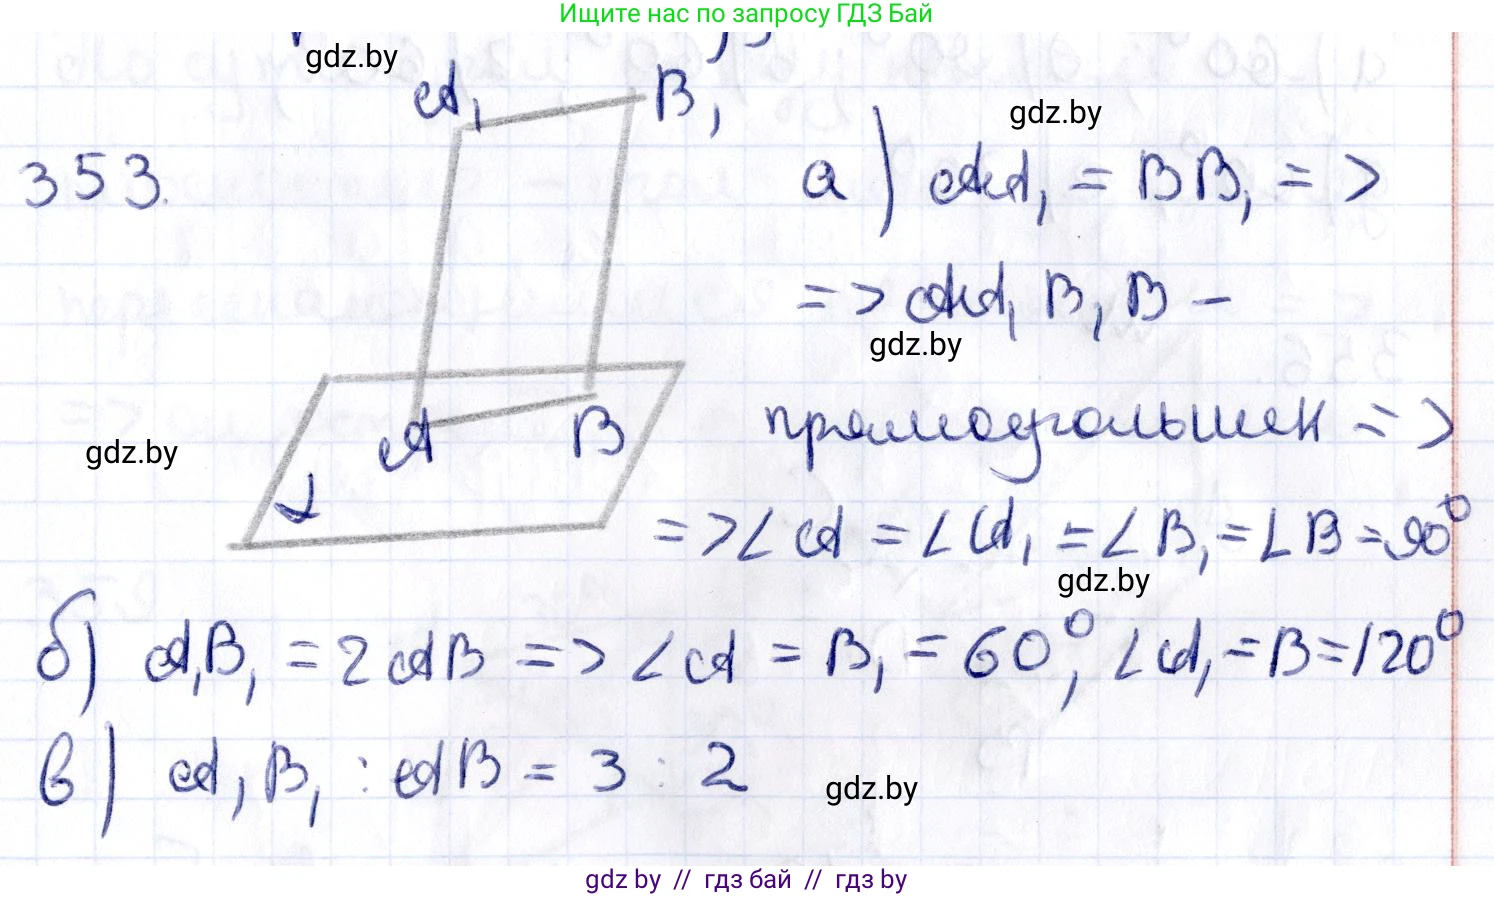 Ищите нас по запросу ГДЗ Бай
gdz.by
A₁ B₁
gdz.by
353.
а) AA₁ = BB₁ =>
=> AA₁B₁B –
gdz.by
A B
прямоугольник =>
gdz.by
α
=> ∠A = ∠A₁ = ∠B₁ = ∠B = 90°
gdz.by
б) A₁B₁ = 2AB => ∠A = B₁ = 60°, ∠A₁ = B = 120°
в) A₁B₁ : AB = 3 : 2
gdz.by
gdz by // гдз бай // гдз by